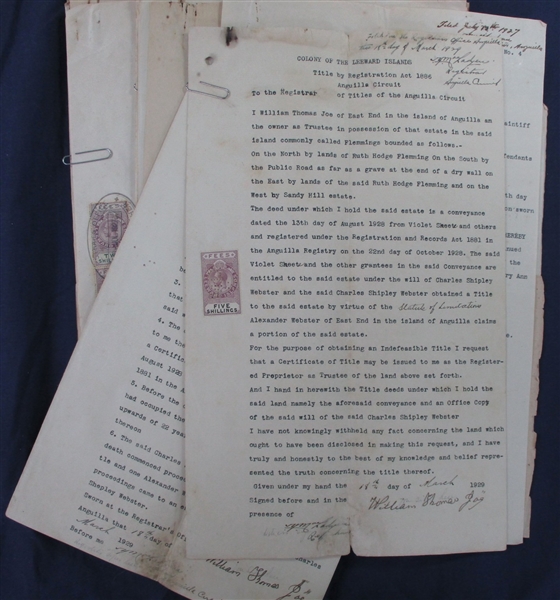 COLONY OF THE LEEWARD ISLANDS
Title by Registration Act 1886
Anguilla Circuit
To the Registrar of Titles of the Anguilla Circuit
I William Thomas Joe of East End in the island of Anguilla am
the owner as Trustee in possession of that estate in the said
island commonly called Flemmings bounded as follows.-
On the North by lands of Ruth Hodge Flemming On the South by
the Public Road as far as a grave at the end of a dry wall on
the East by lands of the said Ruth Hodge Flemming and on the
West by Sandy Hill estate.
The deed under which I hold the said estate is a conveyance
dated the 13th day of August 1928 from Violet and others
and registered under the Registration and Records Act 1881 in
the Anguilla Registry on the 22nd day of October 1928. The said
Violet and the other grantees in the said Conveyance are
entitled to the said estate under the will of Charles Shipley
Webster and the said Charles Shipley Webster obtained a Title
to the said estate by virtue of the Statute of Limitations
Alexander Webster of East End in the island of Anguilla claims
a portion of the said estate.
For the purpose of obtaining an Indefeasible Title I request
that a Certificate of Title may be issued to me as the Register-
ed Proprietor as Trustee of the land above set forth.
And I hand in herewith the Title deeds under which I hold the
said land namely the aforesaid conveyance and an Office Copy
of the said will of the said Charles Shipley Webster
I have not knowingly withheld any fact concerning the land which
ought to have been disclosed in making this request, and I have
truly and honestly to the best of my knowledge and belief repre-
sented the truth concerning the title thereof.
Given under my hand the 18th day of March 1929
Signed before and in the
presence of
William Thomas Joe
FEES
FIVE
SHILLINGS
4. The
to me the
a Certific
August 1928
1881 in the A
5. Before the
had occupied the
upwards of 22 year
thereon
6. The said Charles
death commenced proce
tle and one Alexander
proceedings came to an
Shepley Webster.
Sworn at the Registrar's Offi
Anguilla that 18th day of
March 1929
Before me
William Thomas Joe
No. 4
aintiff
endants
th day
on-sworn
HEREBY
nued
the
ry Ann